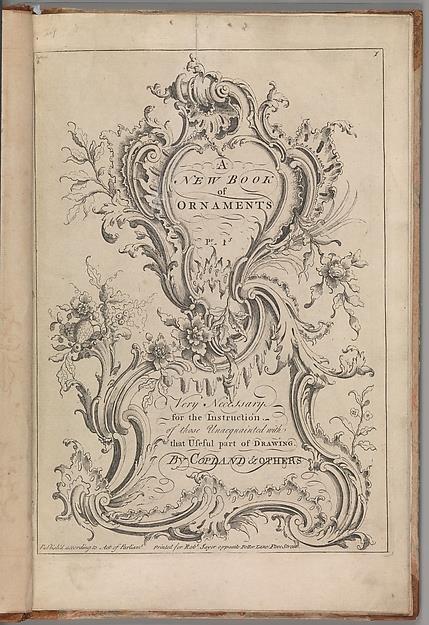 1
A
NEW BOOK
of
ORNAMENTS
Pt. 1st
Very Necessary
for the Instruction
of those Unacquainted with
that Useful part of DRAWING.
By COPLAND & OTHERS
Publish'd according to Act of Parliamt. Printed for Robt. Sayer opposite Fetter Lane Fleet Street.